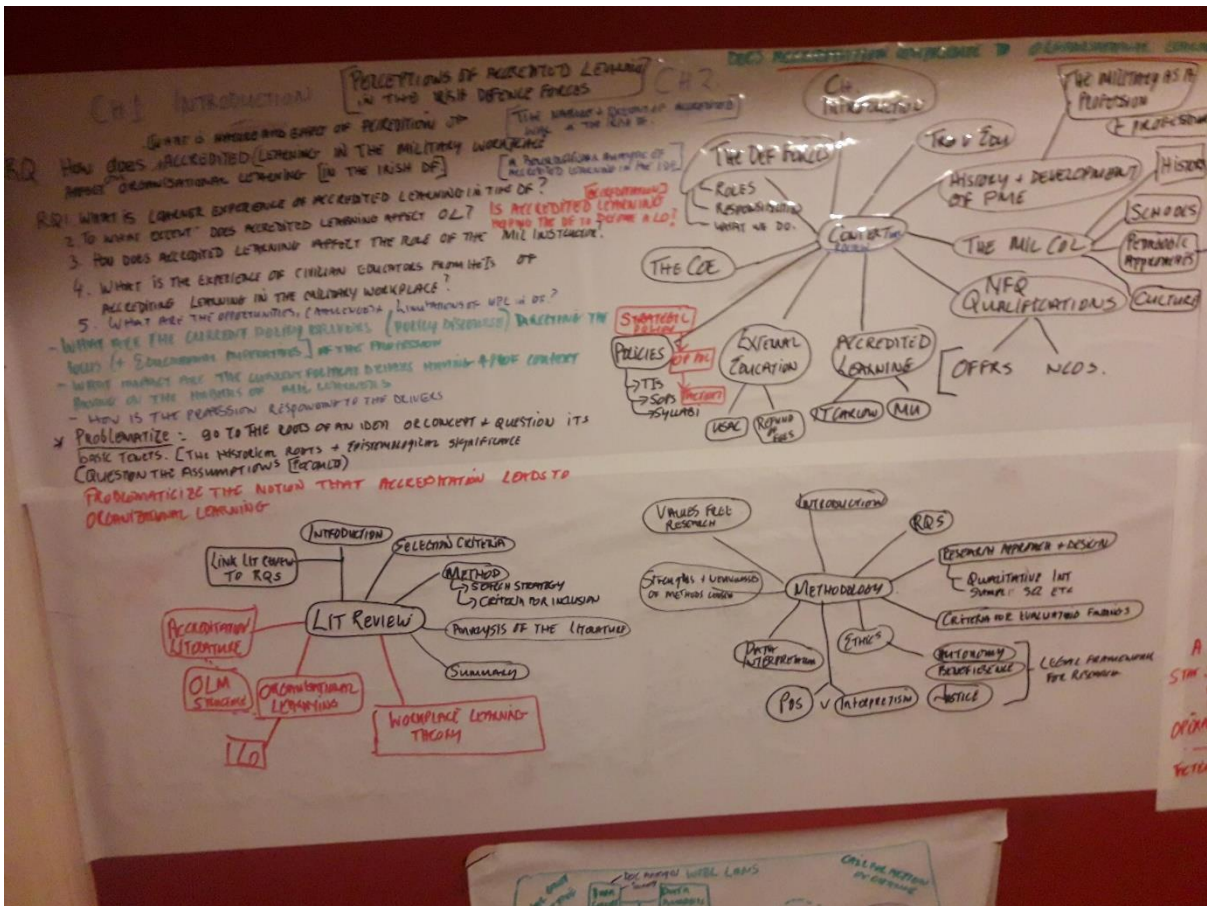 DOES ACCREDITATION CONTRIBUTE TO ORGANISATIONAL
CH 1 INTRODUCTION
PERCEPTIONS OF ACCREDITED LEARNING
IN THE IRISH DEFENCE FORCES
CH 2
WHAT IS NATURE AND EXTENT OF ACCREDITATION
RQ How DOES ACCREDITED LEARNING IN THE MILITARY WORKPLACE
AFFECT ORGANISATIONAL LEARNING [IN THE IRISH DF]
ACCREDITED LEARNING IN THE
RQ1 WHAT IS LEARNER EXPERIENCE OF ACCREDITED LEARNING IN THE DF?
2. TO WHAT EXTENT DOES ACCREDITED LEARNING AFFECT OL?
IS ACCREDITED LEARNING
HELPING THE DF TO BECOME A LO?
3. HOW DOES ACCREDITED LEARNING AFFECT THE ROLE OF THE MIL INSTRUCTOR?
4. WHAT IS THE EXPERIENCE OF CIVILIAN EDUCATORS FROM HEIs OF
ACCREDITING LEARNING IN THE MILITARY WORKPLACE?
5. WHAT ARE THE OPPORTUNITIES, CHALLENGES, LIMITATIONS OF WPL IN DF?
- WHAT ARE THE CURRENT POLICY DRIVERS (POLICY DISCOURSE) DIRECTING THE
FOCUS (+ EDUCATIONAL IMPERATIVES) OF THE PROFESSION
- WHAT IMPACT ARE THE CURRENT POLICY DRIVERS HAVING
ON THE HABITUS OF MIL LEARNERS
- HOW IS THE PROFESSION RESPONDING TO THE DRIVERS
* PROBLEMATIZE: GO TO THE ROOTS OF AN IDEA OR CONCEPT + QUESTION ITS
BASIC TENETS. [THE HISTORICAL ROOTS + EPISTEMOLOGICAL SIGNIFICANCE
(QUESTION THE ASSUMPTIONS
PROBLEMATICIZE THE NOTION THAT ACCREDITATION LEADS TO
ORGANIZATIONAL LEARNING
CH.
INTRODUCTION
THE MILITARY AS A
PROFESSION
THE DEF FORCES
- ROLES
- RESPONSIBILITIES
- WHAT WE DO.
TRG V EDU
HISTORY + DEVELOPMENT
OF PME
HISTORY
SCHOOLS
THE MIL COL
PEDAGOGIC
APPROACHES
CULTURE
THE COE
NFQ
QUALIFICATIONS
OFFRS NCOS.
STRATEGIC
POLICIES
→ TIs
→ SOPS
→ SYLLABI
EXTERNAL
EDUCATION
USAC
REFUND
OF FEES
ACCREDITED
LEARNING
IT CARLOW
MU
INTRODUCTION
LINK LIT REVIEW
TO RQS
SELECTION CRITERIA
METHOD
→ SEARCH STRATEGY
→ CRITERIA FOR INCLUSION
LIT REVIEW
ANALYSIS OF THE LITERATURE
SUMMARY
ACCREDITATION
LITERATURE
OLM
STRUCTURE
ORGANISATIONAL
LEARNING
LO
WORKPLACE LEARNING
THEORY
VALUES FREE
RESEARCH
INTRODUCTION
RQS
RESEARCH APPROACH + DESIGN
- QUALITATIVE INT
SAMPLE SIZE ETC
STRENGTHS + WEAKNESSES
OF METHODS CHOSEN
METHODOLOGY
CRITERIA FOR EVALUATING FINDINGS
DATA
INTERPRETATION
ETHICS
AUTONOMY
BENEFICENCE
JUSTICE
LEGAL FRAMEWORK
FOR RESEARCH
POS V INTERPRETISM